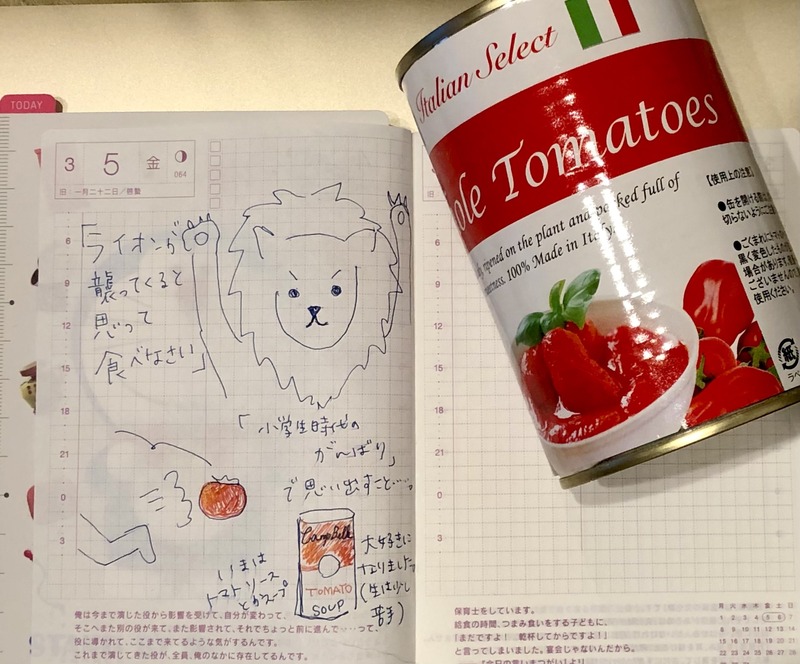 TODAY
3 5 金
064
旧:一月二十二日/啓蟄
6
9
12
15
18
21
0
3
「ライオンが
襲ってくると
思って
食べなさい」
「小学生時代の
がんばり」
で思い出すこと……。
いまは
トマトソース
とかスープ
Campbells
TOMATO
SOUP
大好きに
なりました
(生は少し
苦手)
俺は今まで演じた役から影響を受けて、自分が変わって、
そこへまた別の役が来て、また影響されて、それでもちょっと前に進んで……って、
役に導かれて、ここまで来てるような気がするんです。
これまで演じてきた役が、全員、俺のなかに存在してるんです。
Italian Select
ole Tomatoes
ripened on the plant and packed full of
100% Made in Italy
【使用上の注意】
●缶を開ける際に
切らないようにご注
●ごくまれに
黒く変色したも
場合がありま
ございませんの
使用ください。
紙
ラベ
6
9
12
15
18
21
0
3
保育士をしています。
給食の時間、つまみ食いをする子どもに、
「まだですよ! 乾杯してからですよ!」
と言ってしまいました。宴会じゃないんだから。
月 火 水 木 金 土 日
1 2 3 4 5 6 7
8 9 10 11 12 13 14
15 16 17 18 19 20 21
22 23 24 25 26 27 28